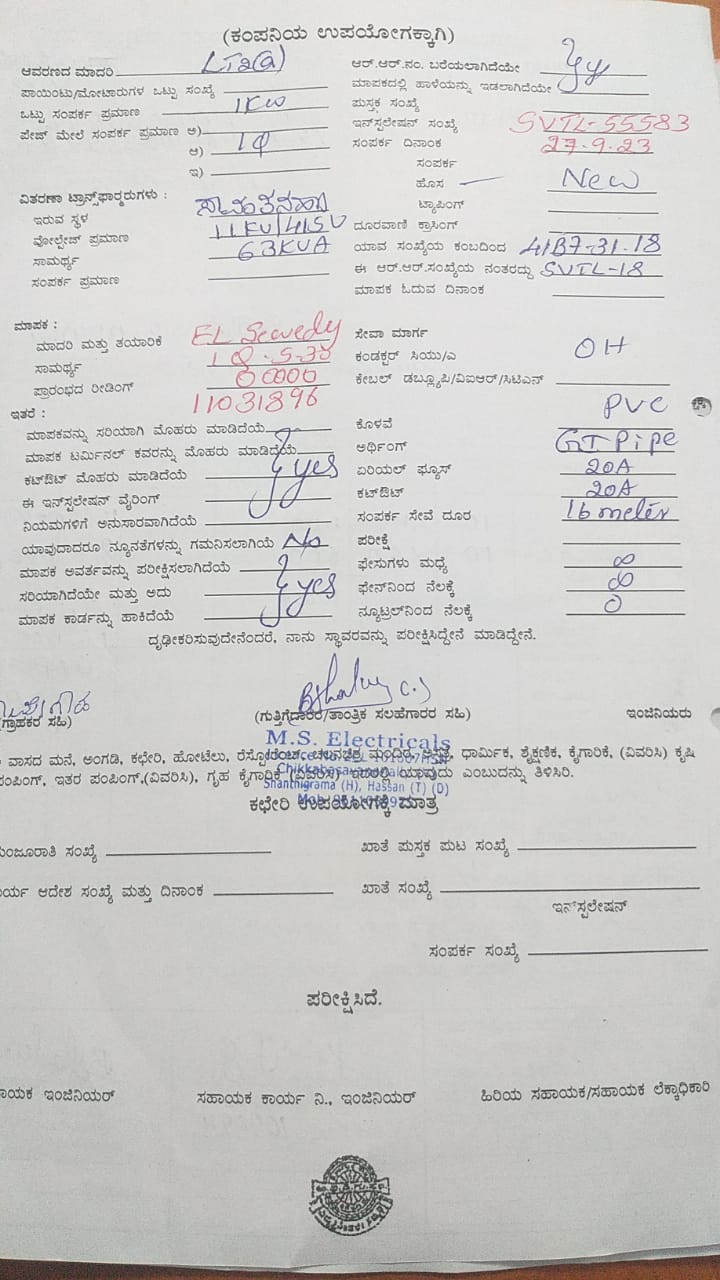 (ಕಂಪನಿಯ ಉಪಯೋಗಕ್ಕಾಗಿ)
ಆವರಣದ ಮಾದರಿ LT2(a)
ಪಾಯಿಂಟು/ಮೋಟಾರುಗಳ ಒಟ್ಟು ಸಂಖ್ಯೆ
ಒಟ್ಟು ಸಂಪರ್ಕ ಪ್ರಮಾಣ 1KW
ಪೇಜ್ ಮೇಲೆ ಸಂಪರ್ಕ ಪ್ರಮಾಣ ಅ)
ಆ) 1Φ
ಇ)
ವಿತರಣಾ ಟ್ರಾನ್ಸ್‌ಫಾರ್‍ಮರುಗಳು :
ಇರುವ ಸ್ಥಳ
ವೋಲ್ಟೇಜ್ ಪ್ರಮಾಣ 11KV/415V
ಸಾಮರ್ಥ್ಯ 63KVA
ಸಂಪರ್ಕ ಪ್ರಮಾಣ
ಆರ್.ಆರ್.ನಂ. ಬರೆಯಲಾಗಿದೆಯೇ
ಮಾಪಕದಲ್ಲಿ ಹಾಳೆಯನ್ನು ಇಡಲಾಗಿದೆಯೇ
ಪುಸ್ತಕ ಸಂಖ್ಯೆ
ಇನ್‌ಸ್ಟಲೇಷನ್ ಸಂಖ್ಯೆ SVTL-55583
ಸಂಪರ್ಕ ದಿನಾಂಕ 27.9.23
ಸಂಪರ್ಕ
ಹೊಸ New
ಟ್ಯಾಪಿಂಗ್
ದೂರವಾಣಿ ಕ್ರಾಸಿಂಗ್
ಯಾವ ಸಂಖ್ಯೆಯ ಕಂಬದಿಂದ 41B7-31.18
ಈ ಆರ್.ಆರ್.ಸಂಖ್ಯೆಯ ನಂತರದ್ದು SVTL-18
ಮಾಪಕ ಓದುವ ದಿನಾಂಕ
ಮಾಪಕ :
ಮಾದರಿ ಮತ್ತು ತಯಾರಿಕೆ EL Sewedy
ಸಾಮರ್ಥ್ಯ 1Φ.5-30
ಪ್ರಾರಂಭದ ರೀಡಿಂಗ್ 00000
11031896
ಇತರೆ :
ಮಾಪಕವನ್ನು ಸರಿಯಾಗಿ ಮೊಹರು ಮಾಡಿದೆಯೆ
ಮಾಪಕ ಟರ್ಮಿನಲ್ ಕವರನ್ನು ಮೊಹರು ಮಾಡಿದ್ದೆಯೆ
ಕಟ್‌ಔಟ್ ಮೊಹರು ಮಾಡಿದೆಯೆ yes
ಈ ಇನ್‌ಸ್ಟಲೇಷನ್ ವೈರಿಂಗ್
ನಿಯಮಗಳಿಗೆ ಅನುಸಾರವಾಗಿದೆಯೆ
ಯಾವುದಾದರೂ ನ್ಯೂನತೆಗಳನ್ನು ಗಮನಿಸಲಾಗಿಯೆ No
ಮಾಪಕ ಅವರ್ತವನ್ನು ಪರೀಕ್ಷಿಸಲಾಗಿದೆಯೆ
ಸರಿಯಾಗಿದೆಯೇ ಮತ್ತು ಅದು yes
ಮಾಪಕ ಕಾರ್ಡನ್ನು ಹಾಕಿದೆಯೆ
ಸೇವಾ ಮಾರ್ಗ
ಕಂಡಕ್ಟರ್ ಸಿಯು/ಎ OH
ಕೇಬಲ್ ಡಬ್ಲ್ಯೂಪಿ/ವಿಐಆರ್/ಸಿಟಿಎನ್
ಕೊಳವೆ PVC
ಅರ್ಥಿಂಗ್ GI Pipe
ಏರಿಯಲ್ ಫ್ಯೂಸ್ 20A
ಕಟ್‌ಔಟ್ 20A
ಸಂಪರ್ಕ ಸೇವೆ ದೂರ 16 meter
ಪರೀಕ್ಷೆ
ಫೇಸುಗಳು ಮಧ್ಯೆ ∞
ಫೇಸ್‌ನಿಂದ ನೆಲಕ್ಕೆ ∞
ನ್ಯೂಟ್ರಲ್‌ನಿಂದ ನೆಲಕ್ಕೆ 0
ದೃಢೀಕರಿಸುವುದೇನೆಂದರೆ, ನಾನು ಸ್ಥಾವರವನ್ನು ಪರೀಕ್ಷಿಸಿದ್ದೇನೆ ಮಾಡಿದ್ದೇನೆ.
(ಗ್ರಾಹಕರ ಸಹಿ) (ಗುತ್ತಿಗೆದಾರರ/ತಾಂತ್ರಿಕ ಸಲಹೆಗಾರರ ಸಹಿ) ಇಂಜಿನಿಯರು
M.S. Electricals
ವಾಸದ ಮನೆ, ಅಂಗಡಿ, ಕಛೇರಿ, ಹೋಟೆಲು, ರೆಸ್ಟೋರೆಂಟ್, ಚಲನಚಿತ್ರ ಮಂದಿರ, ಆಸ್ಪತ್ರೆ, ಧಾರ್ಮಿಕ, ಶೈಕ್ಷಣಿಕ, ಕೈಗಾರಿಕೆ, (ವಿವರಿಸಿ) ಕೃಷಿ
ಪಂಪಿಂಗ್, ಇತರ ಪಂಪಿಂಗ್,(ವಿವರಿಸಿ), ಗೃಹ ಕೈಗಾರಿಕೆ (ವಿವರಿಸಿ) ಇದರಲ್ಲಿ ಯಾವುದು ಎಂಬುದನ್ನು ತಿಳಿಸಿರಿ.
Shanthigrama (H), Hassan (T) (D)
ಕಛೇರಿ ಉಪಯೋಗಕ್ಕೆ ಮಾತ್ರ
ಮಂಜೂರಾತಿ ಸಂಖ್ಯೆ ಖಾತೆ ಪುಸ್ತಕ ಪುಟ ಸಂಖ್ಯೆ
ಕಾರ್ಯ ಆದೇಶ ಸಂಖ್ಯೆ ಮತ್ತು ದಿನಾಂಕ ಖಾತೆ ಸಂಖ್ಯೆ
ಇನ್‌ಸ್ಟಲೇಷನ್
ಸಂಪರ್ಕ ಸಂಖ್ಯೆ
ಪರೀಕ್ಷಿಸಿದೆ.
ಸಹಾಯಕ ಇಂಜಿನಿಯರ್ ಸಹಾಯಕ ಕಾರ್ಯ ನಿ., ಇಂಜಿನಿಯರ್ ಹಿರಿಯ ಸಹಾಯಕ/ಸಹಾಯಕ ಲೆಕ್ಕಾಧಿಕಾರಿ